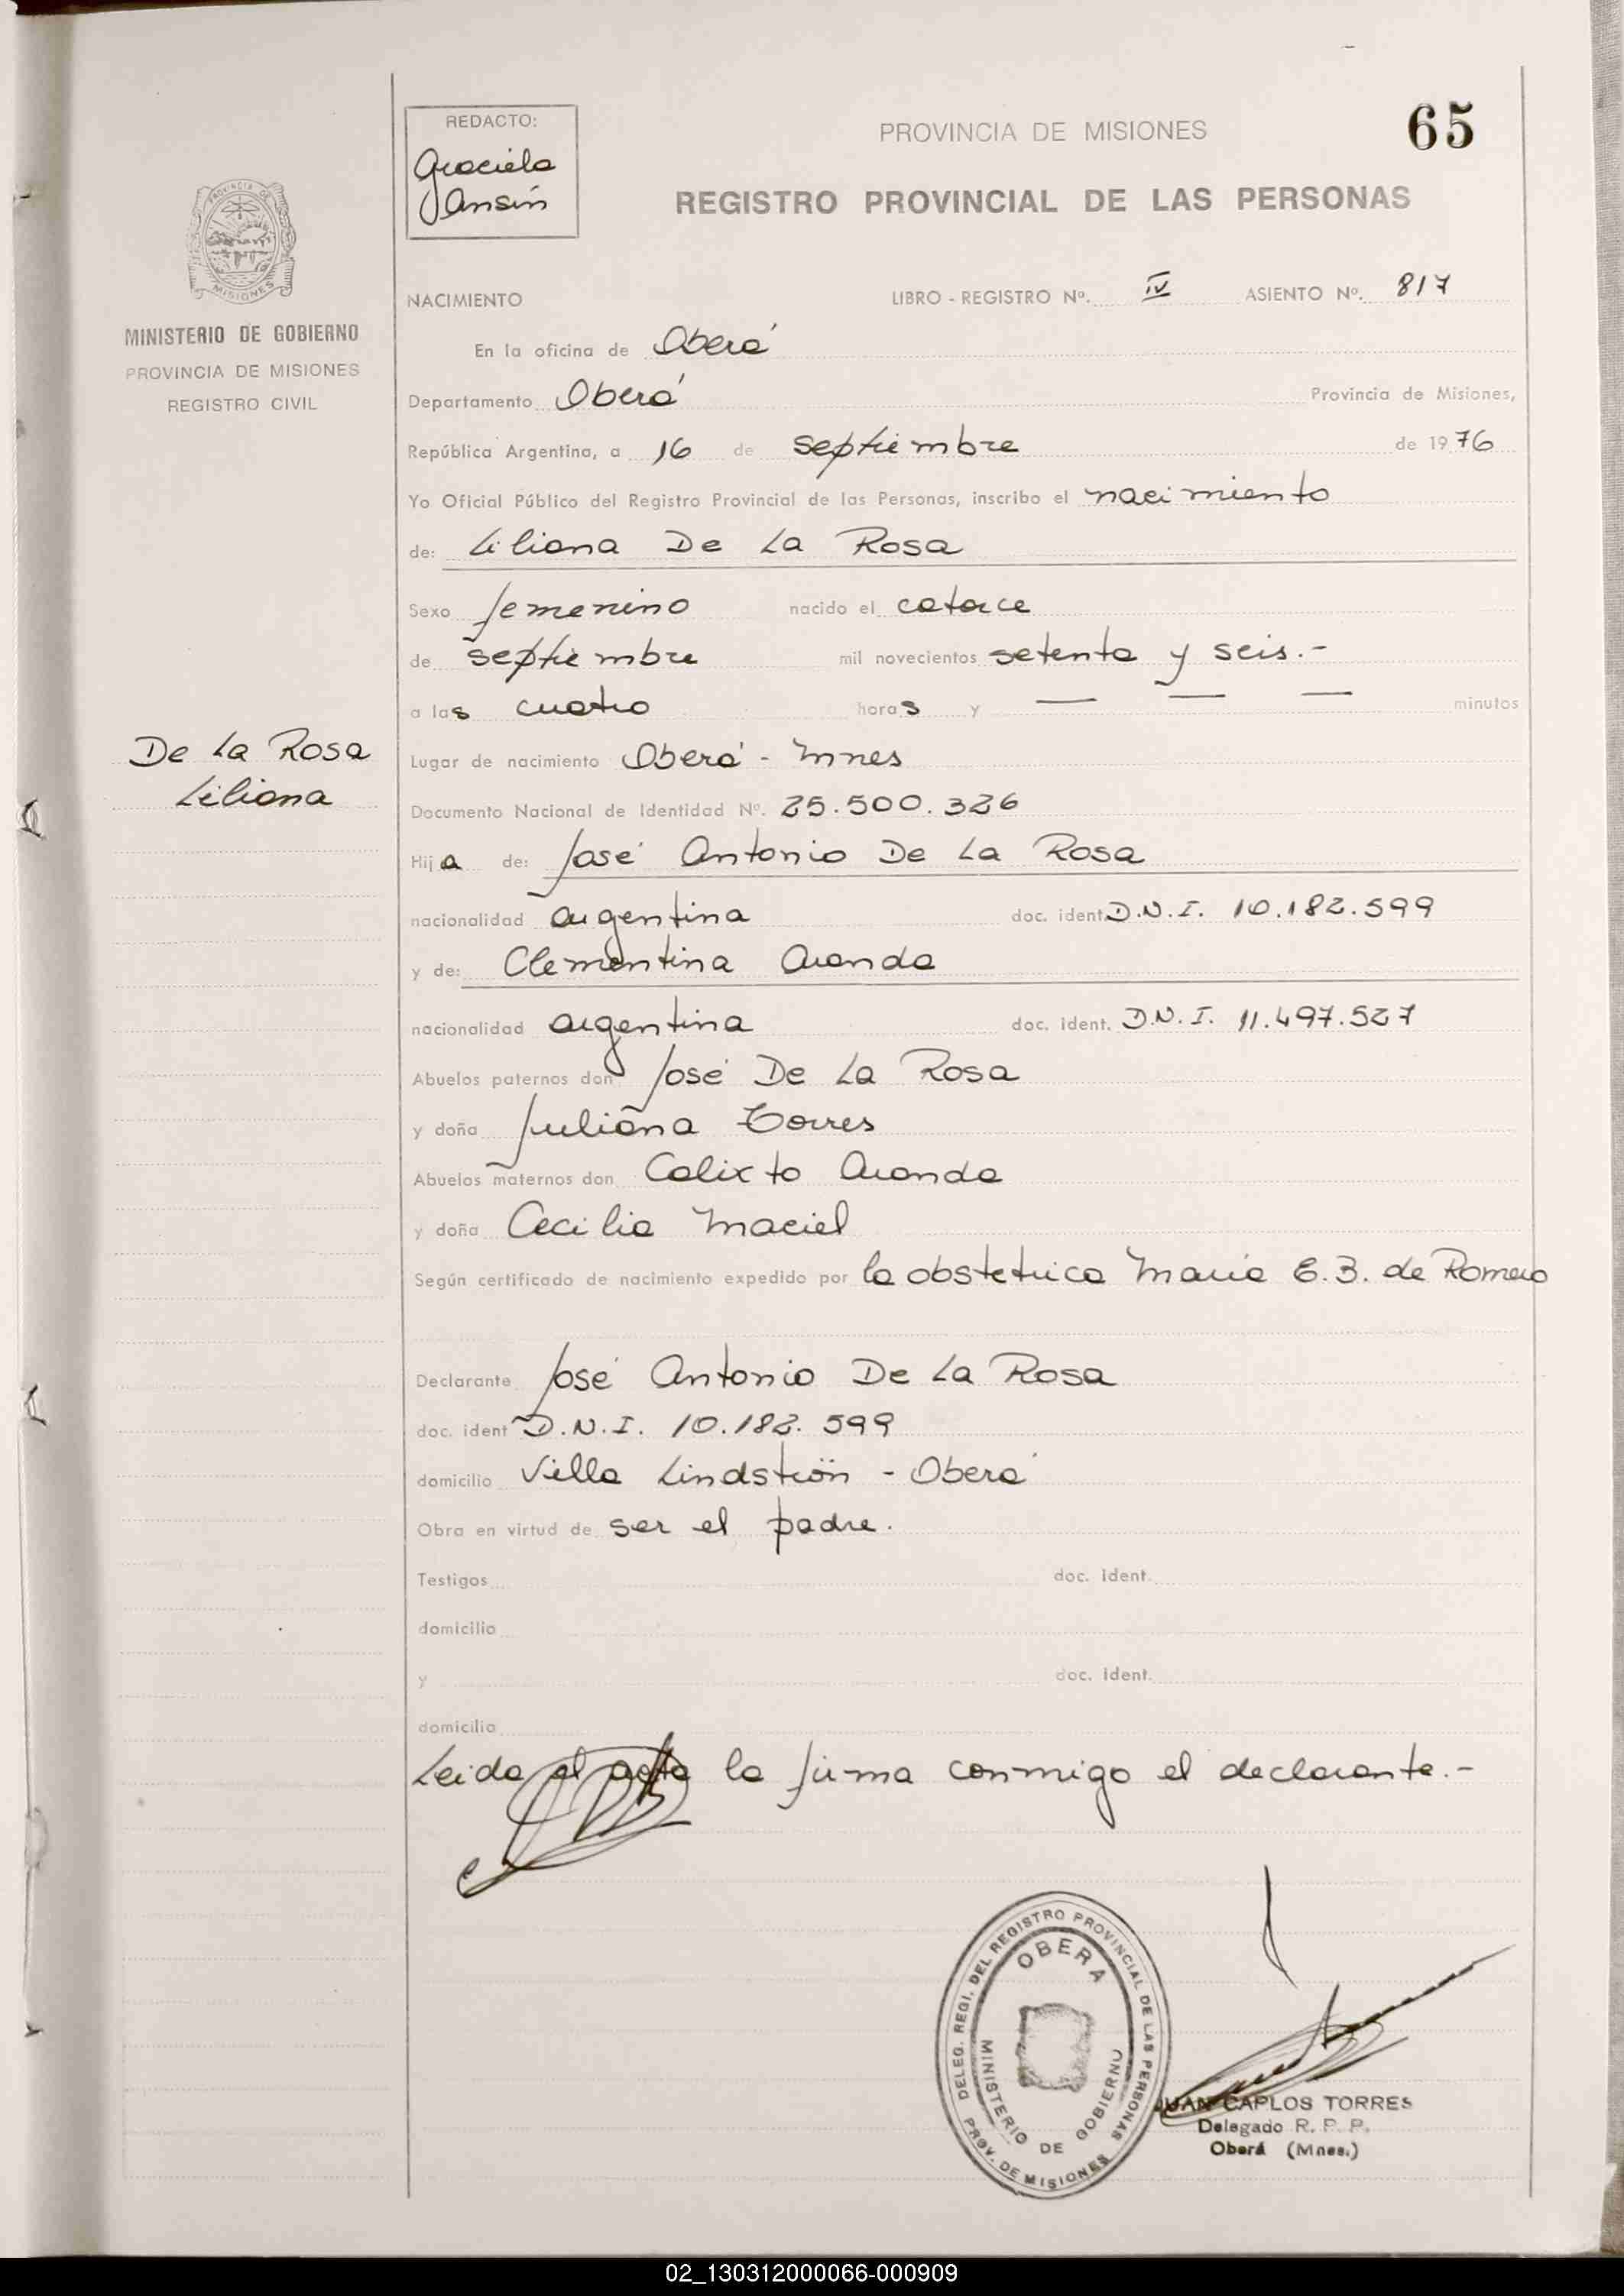 REDACTO:
Graciela
Jansin
PROVINCIA DE MISIONES
65
REGISTRO PROVINCIAL DE LAS PERSONAS
PROVINCIA DE
MISIONES
MINISTERIO DE GOBIERNO
PROVINCIA DE MISIONES
REGISTRO CIVIL
NACIMIENTO LIBRO - REGISTRO Nº. IV ASIENTO Nº. 817
En la oficina de Oberá
Departamento Oberá Provincia de Misiones,
República Argentina, a 16 de septiembre de 1976
Yo Oficial Público del Registro Provincial de las Personas, inscribo el nacimiento
de: Liliana De La Rosa
Sexo femenino nacido el catorce
de septiembre mil novecientos setenta y seis.-
a las cuatro horas y — — — minutos
De La Rosa
Liliana
Lugar de nacimiento Oberá - Mnes
Documento Nacional de Identidad Nº. 25.500.326
Hija de: José Antonio De La Rosa
nacionalidad argentina doc. ident. D.N.I. 10.182.599
y de: Clementina Aranda
nacionalidad argentina doc. ident. D.N.I. 11.497.527
Abuelos paternos don José De La Rosa
y doña Juliana Torres
Abuelos maternos don Calixto Aranda
y doña Cecilia Maciel
Según certificado de nacimiento expedido por la obstetrica Maria E.B. de Romero
Declarante José Antonio De La Rosa
doc. ident D.N.I. 10.182.599
domicilio Villa Lindströn - Oberá
Obra en virtud de ser el padre.
Testigos doc. ident.
domicilio
y doc. ident.
domicilio
Leida el acta la firma conmigo el declarante.-
DELEG. REGI. DEL REGISTRO PROVINCIAL DE LAS PERSONAS
OBERA
MINISTERIO DE GOBIERNO
PROV. DE MISIONES
JUAN CARLOS TORRES
Delegado R. P. P.
Oberá (Mnes.)
02_130312000066-000909